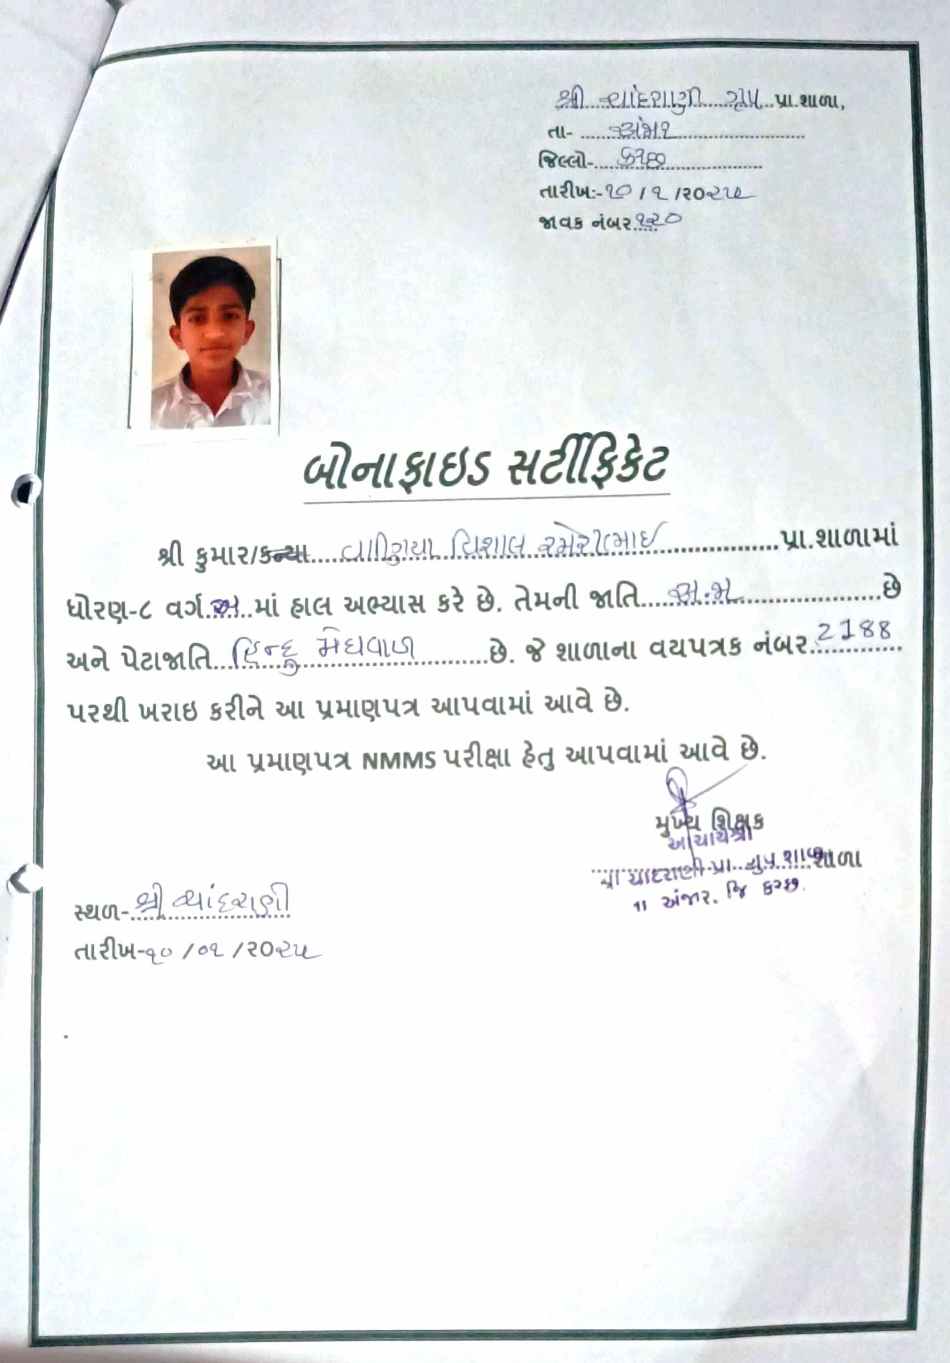 શ્રી ચાંદરાણી ગ્રુપ પ્રા.શાળા,
તા- અંજાર
જિલ્લો- કચ્છ
તારીખ:-૧૦/૧/૨૦૨૫
જાવક નંબર ૧૨૦
બોનાફાઇડ સર્ટીફિકેટ
શ્રી કુમાર/કન્યા વાણિયા વિશાલ રમેશભાઈ પ્રા.શાળામાં
ધોરણ-૮ વર્ગ અ માં હાલ અભ્યાસ કરે છે. તેમની જાતિ અ.જા છે
અને પેટાજાતિ હિન્દુ મેઘવાળ છે. જે શાળાના વયપત્રક નંબર 2188
પરથી ખરાઇ કરીને આ પ્રમાણપત્ર આપવામાં આવે છે.
આ પ્રમાણપત્ર NMMS પરીક્ષા હેતુ આપવામાં આવે છે.
મુખ્ય શિક્ષક
આચાર્યશ્રી
શ્રી ચાંદરાણી પ્રા. ગ્રુપ શાળા શાળા
તા અંજાર. જિ કચ્છ.
સ્થળ- શ્રી ચાંદરાણી
તારીખ-૧૦/૦૧/૨૦૨૫